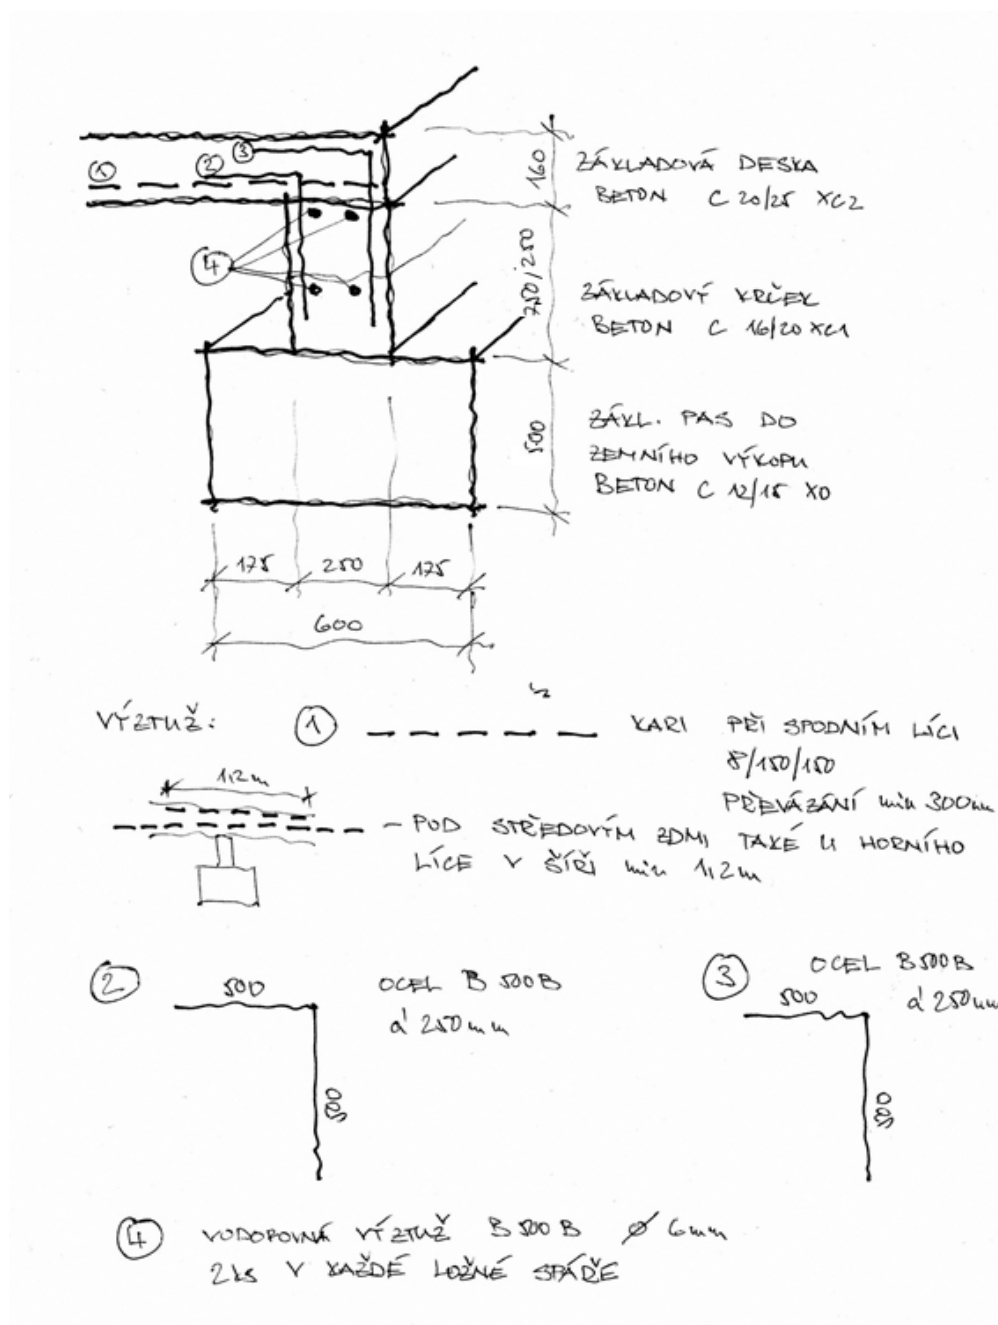 1
2
3
4
160
ZÁKLADOVÁ DESKA
BETON C 20/25 XC2
250/250
ZÁKLADOVÝ KRČEK
BETON C 16/20 XC1
500
ZÁKL. PAS DO
ZEMNÍHO VÝKOPU
BETON C 12/15 X0
175 250 175
600
VÝZTUŽ: 1 KARI PŘI SPODNÍM LÍCI
8/150/150
PŘEVÁZÁNÍ min 300mm
1,2m
- POD STŘEDOVÝM ZDMI TAKÉ U HORNÍHO
LÍCE V ŠÍŘI min 1,2m
2 500 OCEL B 500B
á 250mm
500
3 OCEL B500B
500 á 250mm
500
4 VODOROVNÁ VÝZTUŽ B 500 B ø 6mm
2ks V KAŽDÉ LOŽNÉ SPÁŘE